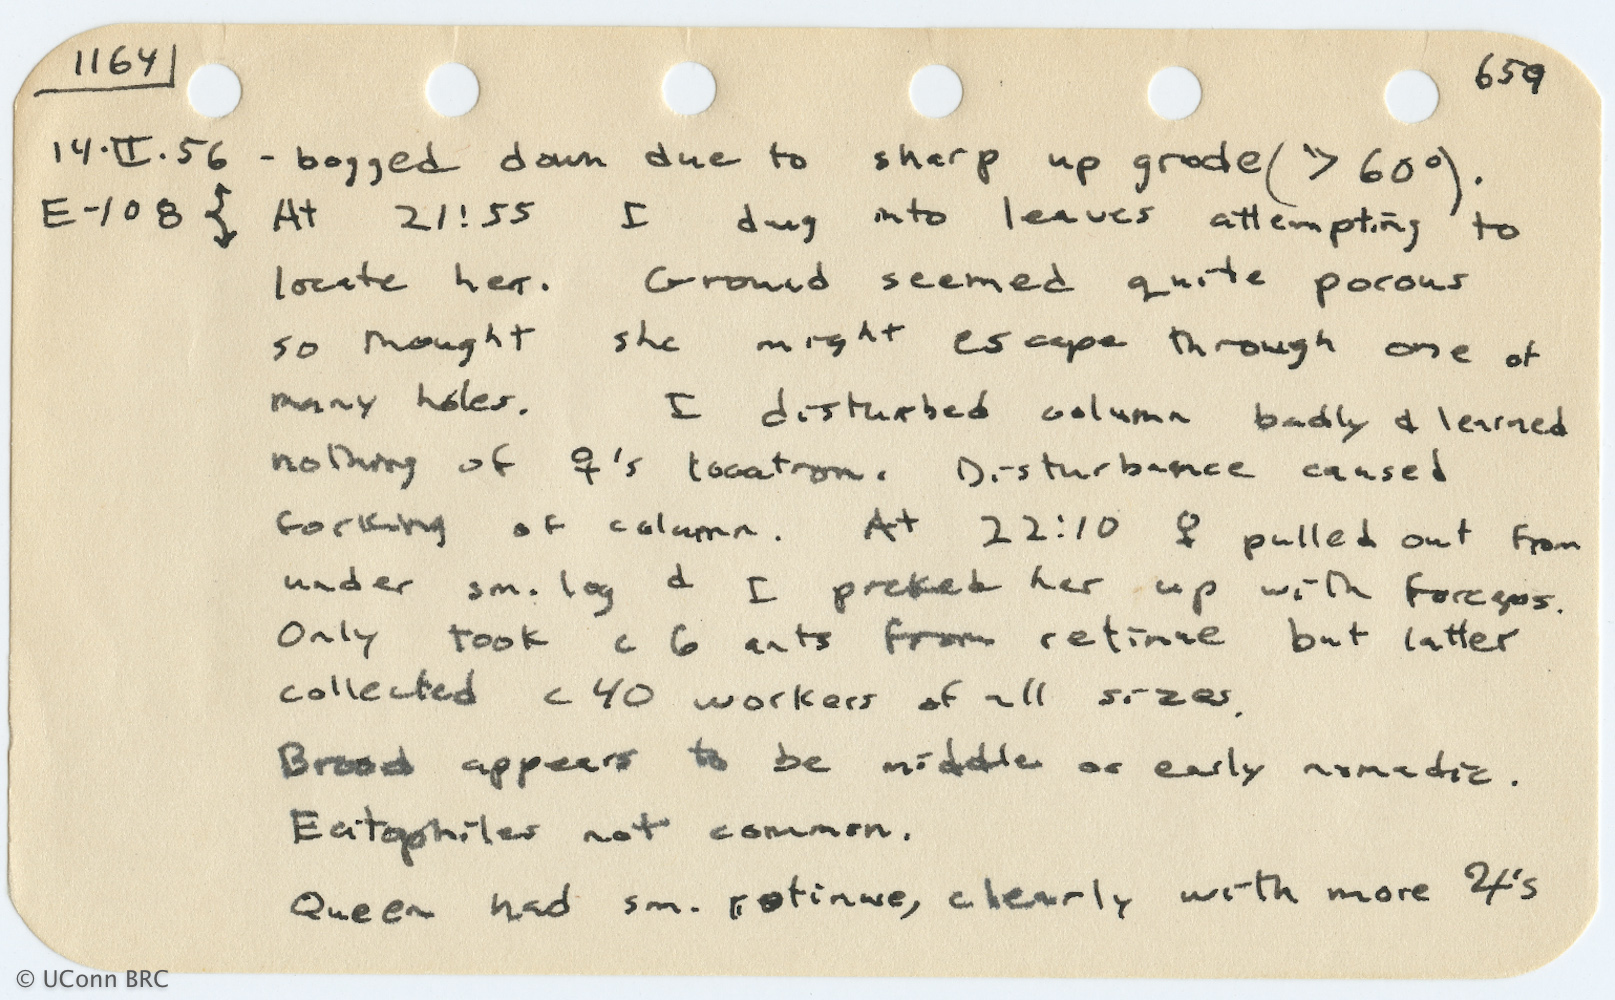 1164 659
14.II.56 - bogged down due to sharp up grade (> 60°).
E-108 { At 21:55 I dug into leaves attempting to
locate her. Ground seemed quite porous
so thought she might escape through one of
many holes. I disturbed column badly & learned
nothing of ♀'s location. Disturbance caused
forking of column. At 22:10 ♀ pulled out from
under sm. log & I picked her up with forceps.
Only took c 6 ants from retinue but latter
collected c 40 workers of all sizes.
Brood appears to be middle or early nomadic.
Ecitophiles not common.
Queen had sm. retinue, clearly with more ♃'s
© UConn BRC